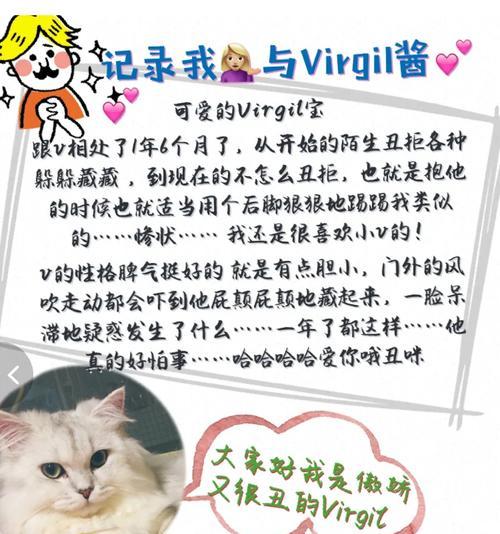 记录我与Virgil酱
可爱的Virgil宝
跟v相处了1年6个月了，从开始的陌生丑拒各种
躲躲藏藏，到现在的不怎么丑拒，也就是抱他
的时候也就适当用个后脚狠狠地踢踢我类似
的……惨状……我还是很喜欢小v的！
v的性格脾气挺好的 就是有点胆小，门外的风
吹走动都会吓到他屁颠屁颠地藏起来，一脸呆
滞地疑惑发生了什么……一年了都这样……他
真的好怕事……哈哈哈哈爱你哦丑咪
大家好我是傲娇
又很丑的Virgil